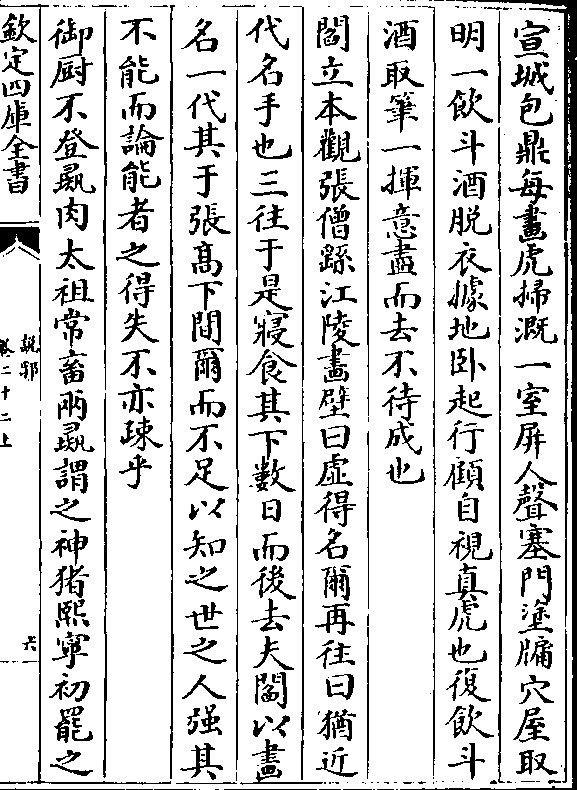 宣城包鼎每畫虎掃溉一室屏人聲塞門塗牖穴屋取
明一飲斗酒脱衣據地卧起行顧自視真虎也復飲斗
酒取筆一揮意盡而去不待成也
閻立本觀張僧繇江陵畫壁曰虛得名爾再往曰猶近
代名手也三往于是寢食其下數日而後去夫閻以畫
名一代其于張髙下間爾而不足以知之世之人强其
不能而論能者之得失不亦疎乎
御厨不登彘肉太祖常畜兩彘謂之神猪熙寧初罷之
欽定四庫全書
說郛
卷二十二上
六